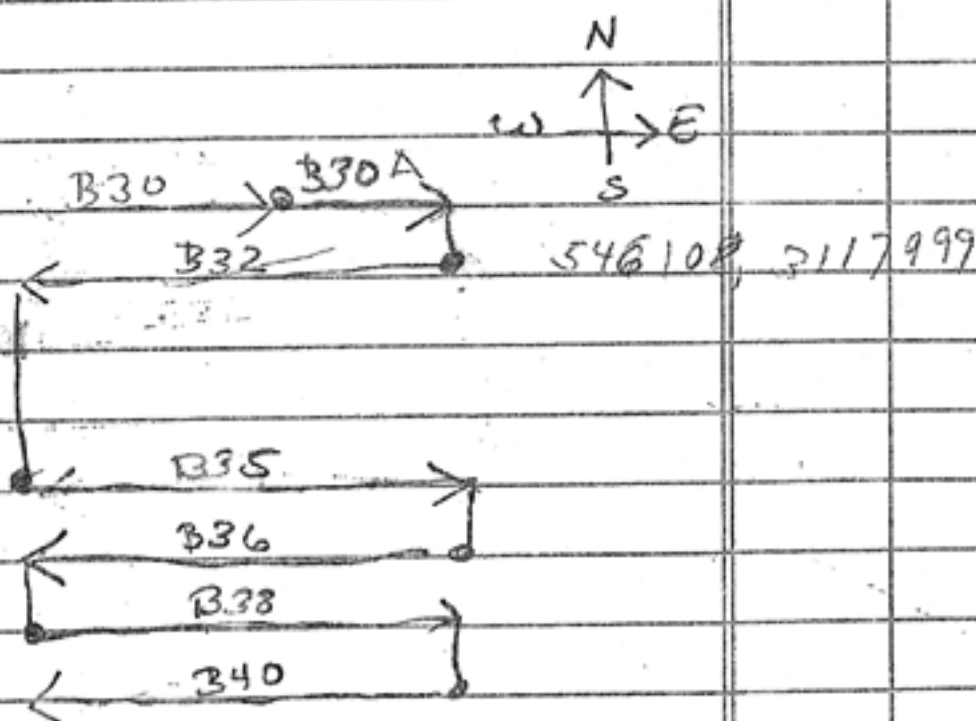 N
W E
B30 B30A
S
B32 546108, 3117999
B35
B36
B38
B40